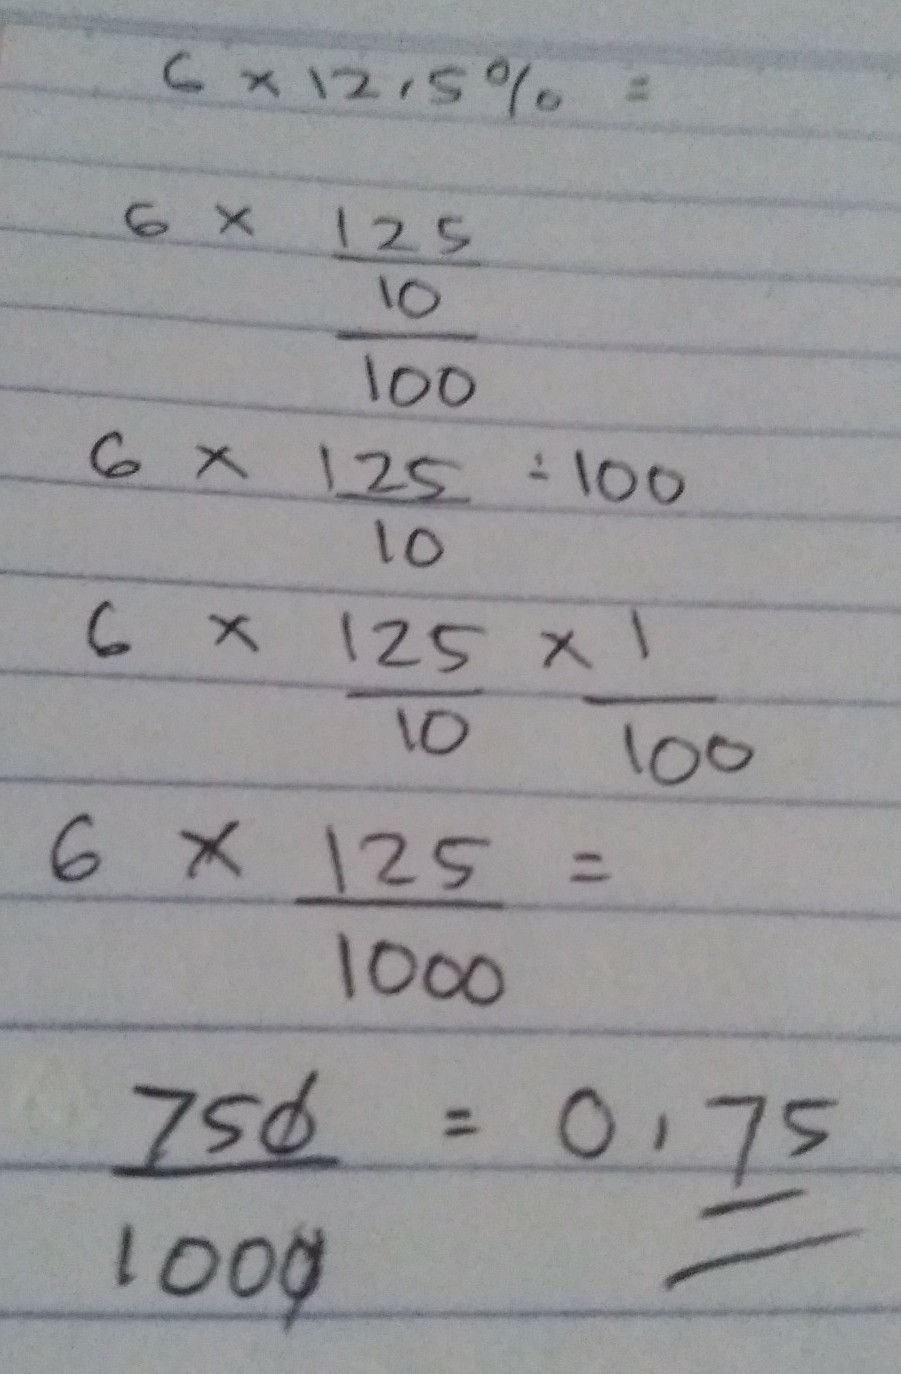 6 × 12,5% =
6 × 125
10
100
6 × 125 ÷ 100
10
6 × 125 × 1
10 100
6 × 125 =
1000
750 = 0,75
1000